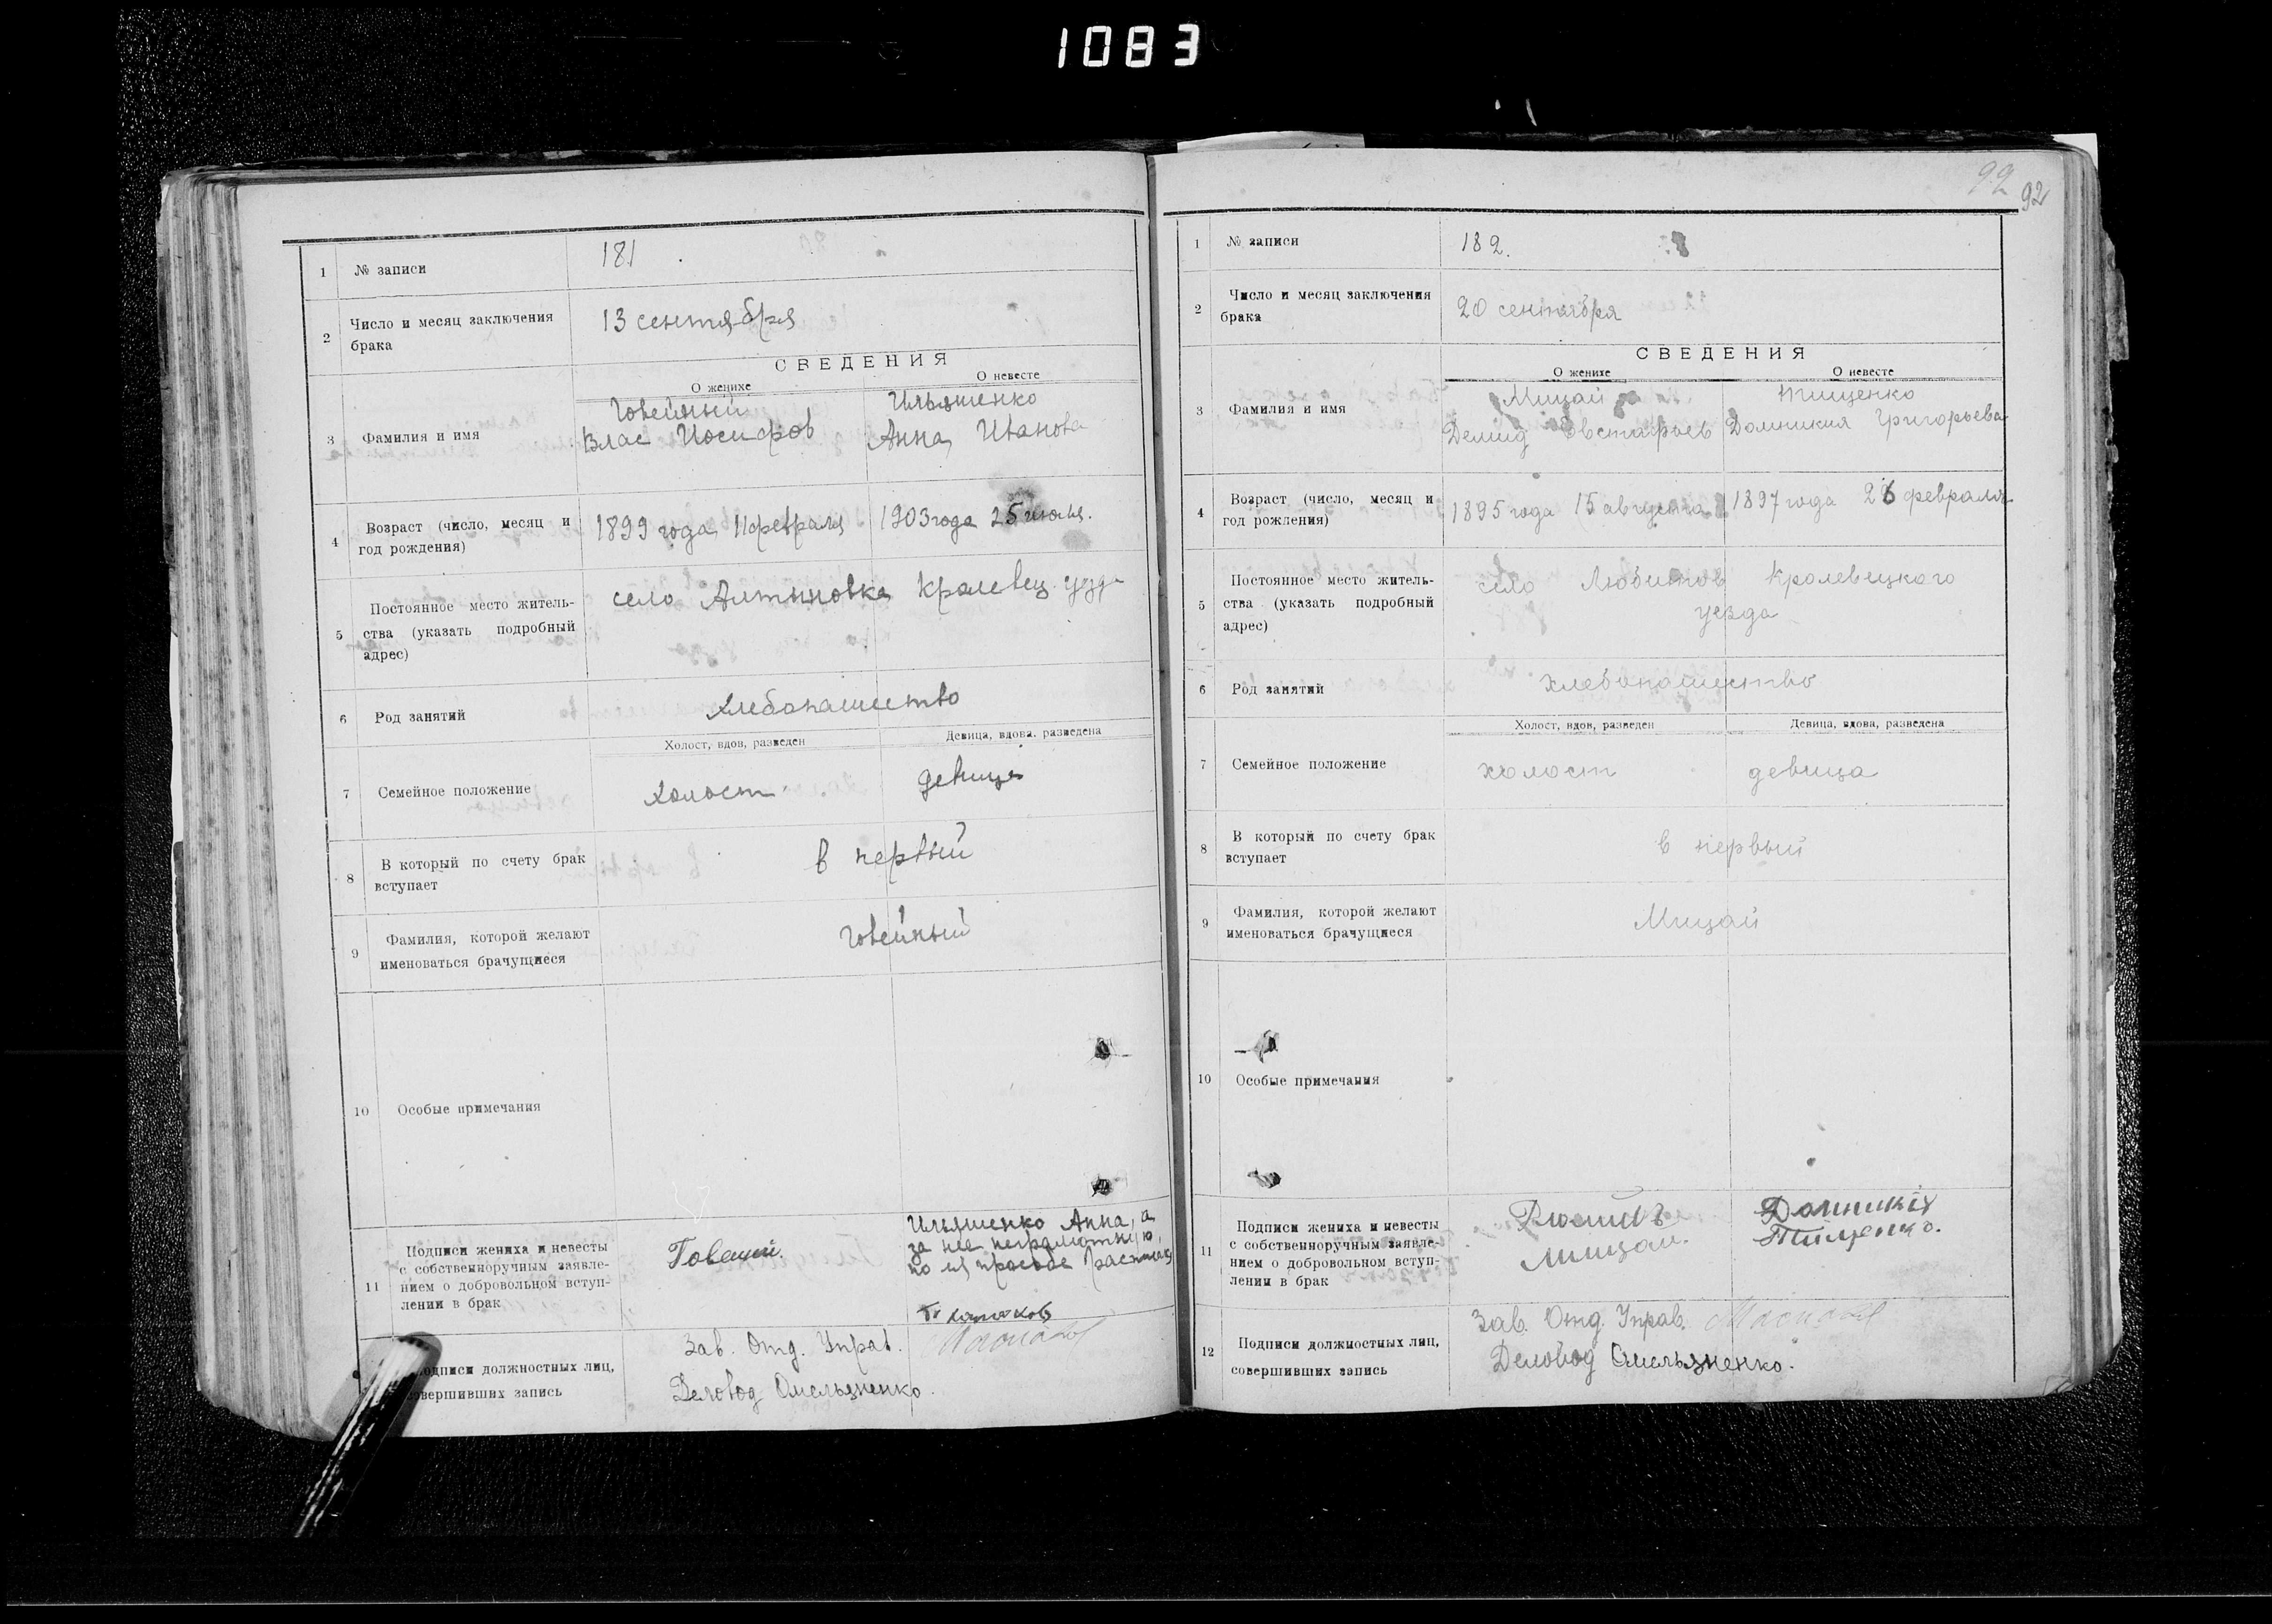 1083
1 № записи 181
2 Число и месяц заключения брака 13 сентября
СВЕДЕНИЯ
О женихе О невесте
3 Фамилия и имя
Говейный Ильяшенко
Влас Иосифов Анна Иванова
4 Возраст (число, месяц и год рождения) 1899 года 11 февраля 1903 года 25 июля.
5 Постоянное место жительства (указать подробный адрес) село Алтыновка Кролевец. уезда
6 Род занятий хлебопашество
Холост, вдов, разведен Девица, вдова, разведена
7 Семейное положение холост девица
8 В который по счету брак вступает в первый
9 Фамилия, которой желают именоваться брачущиеся Говейный
10 Особые примечания
11 Подписи жениха и невесты с собственноручным заявлением о добровольном вступлении в брак
Ильяшенко Анна, а
за нее неграмотную,
по ея просьбе
12 Подписи должностных лиц, совершивших запись
Зав. Отд. Управ.
Деловод Омельяненко.
92
92
1 № записи 182.
2 Число и месяц заключения брака 20 сентября
СВЕДЕНИЯ
О женихе О невесте
3 Фамилия и имя
Мицай Тищенко
Демид Евстафьев Домникия Григорьева
4 Возраст (число, месяц и год рождения) 1895 года 15 августа 1897 года 26 февраля
5 Постоянное место жительства (указать подробный адрес) село Любитов Кролевецкого
уезда
6 Род занятий хлебопашество
Холост, вдов, разведен Девица, вдова, разведена
7 Семейное положение холост девица
8 В который по счету брак вступает в первый
9 Фамилия, которой желают именоваться брачущиеся Мицай
10 Особые примечания
11 Подписи жениха и невесты с собственноручным заявлением о добровольном вступлении в брак
Мицай. Тищенко.
12 Подписи должностных лиц, совершивших запись
Зав. Отд. Управ.
Деловод Омельяненко.